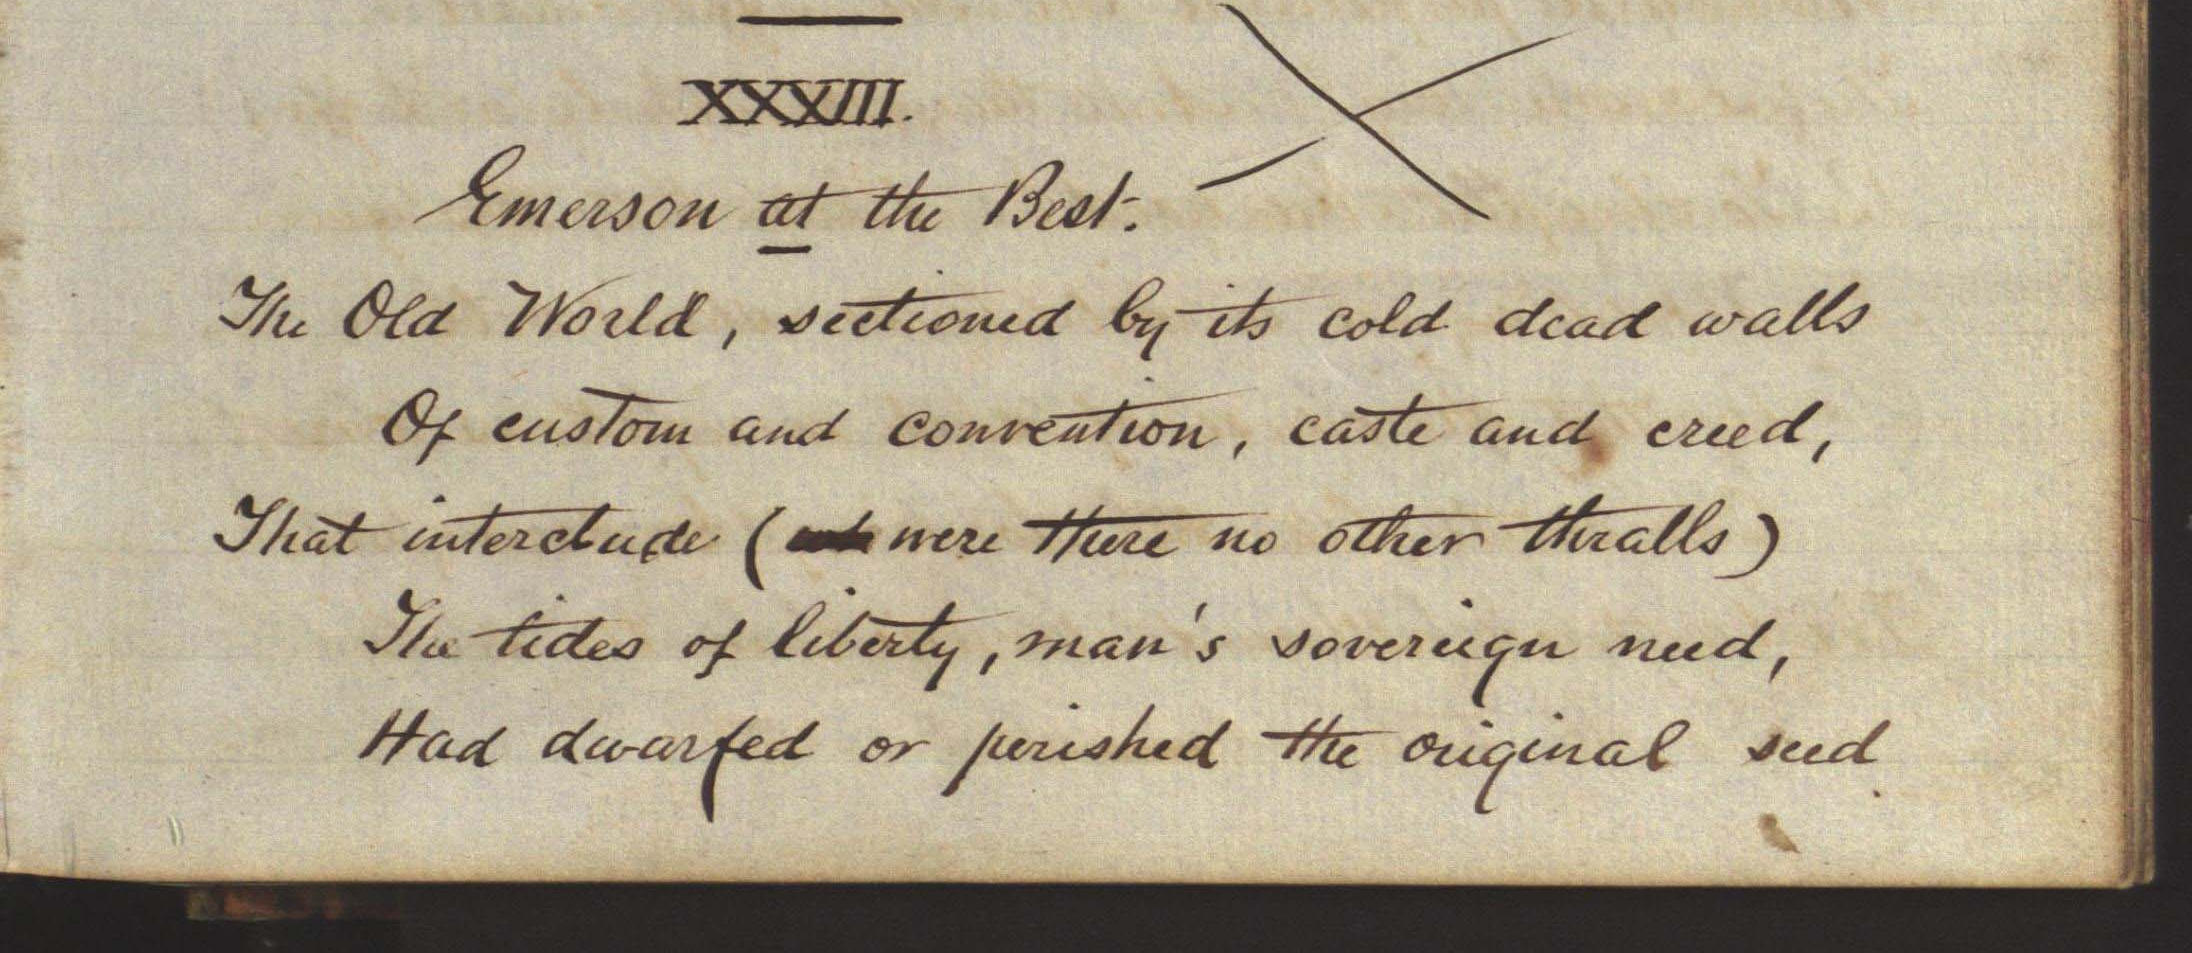 XXXIII.
Emerson at the Best.
The Old World, sectioned by its cold dead walls
Of custom and convention, caste and creed,
That interclude (were there no other thralls)
The tides of liberty, man's sovereign need,
Had dwarfed or perished the original seed.